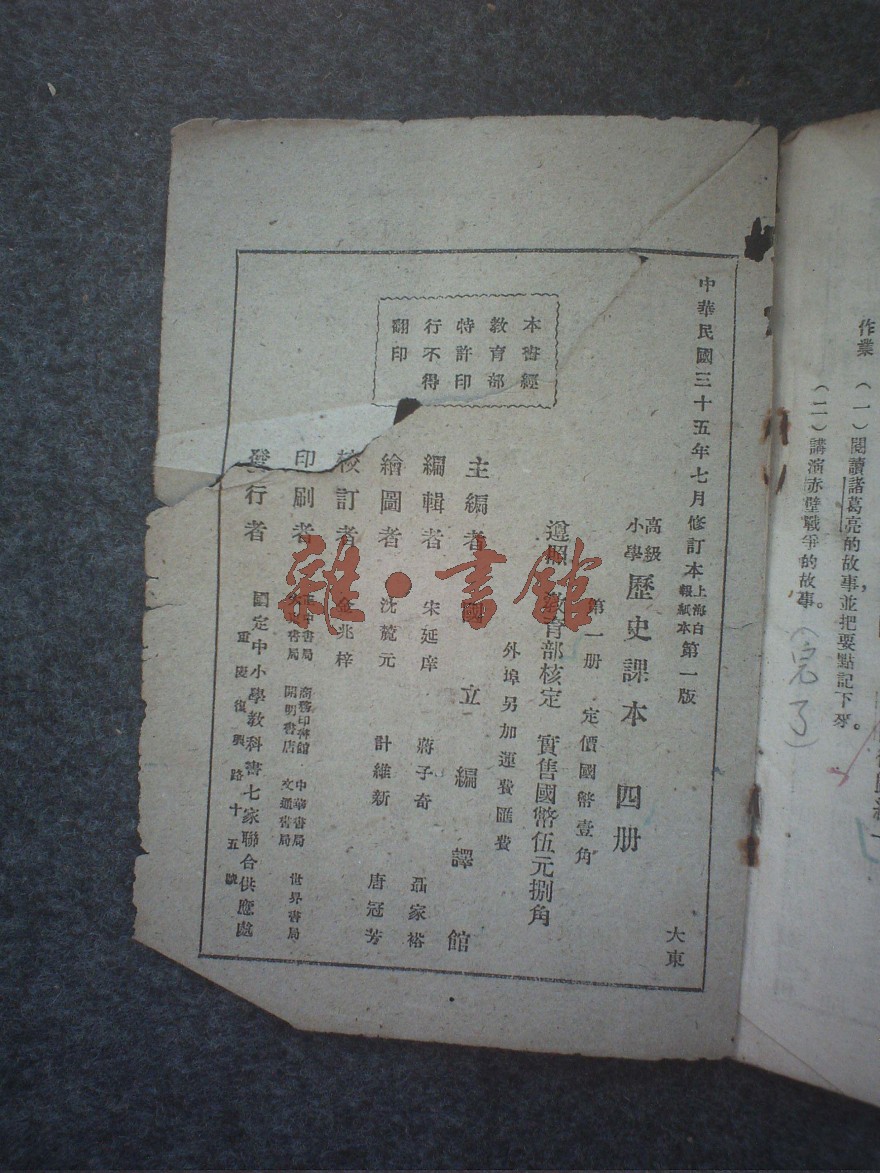 作業
（一）閱讀諸葛亮的故事，並把要點記下來。
（二）講演赤壁戰爭的故事。（完了）
中華民國三十五年七月修訂本上海白報紙本第一版
大東
高級小學歷史課本 四册
第一册 定價國幣壹角
遵照 教育部核定 實售國幣伍元捌角
外埠另加運費匯費
本書經
教育部
特許印
行不得
翻印
主編者 國立編譯館
編輯者 宋延庠 蔣子奇 聶家裕
繪圖者 沈麓元 計維新 唐冠芳
校訂者 金兆梓
印刷者 正中書局 商務印書館 中華書局 世界書局
書局 開明書店 文通書局
發行者 國定中小學教科書七家聯合供應處
重慶復興路十五號
雜·書館